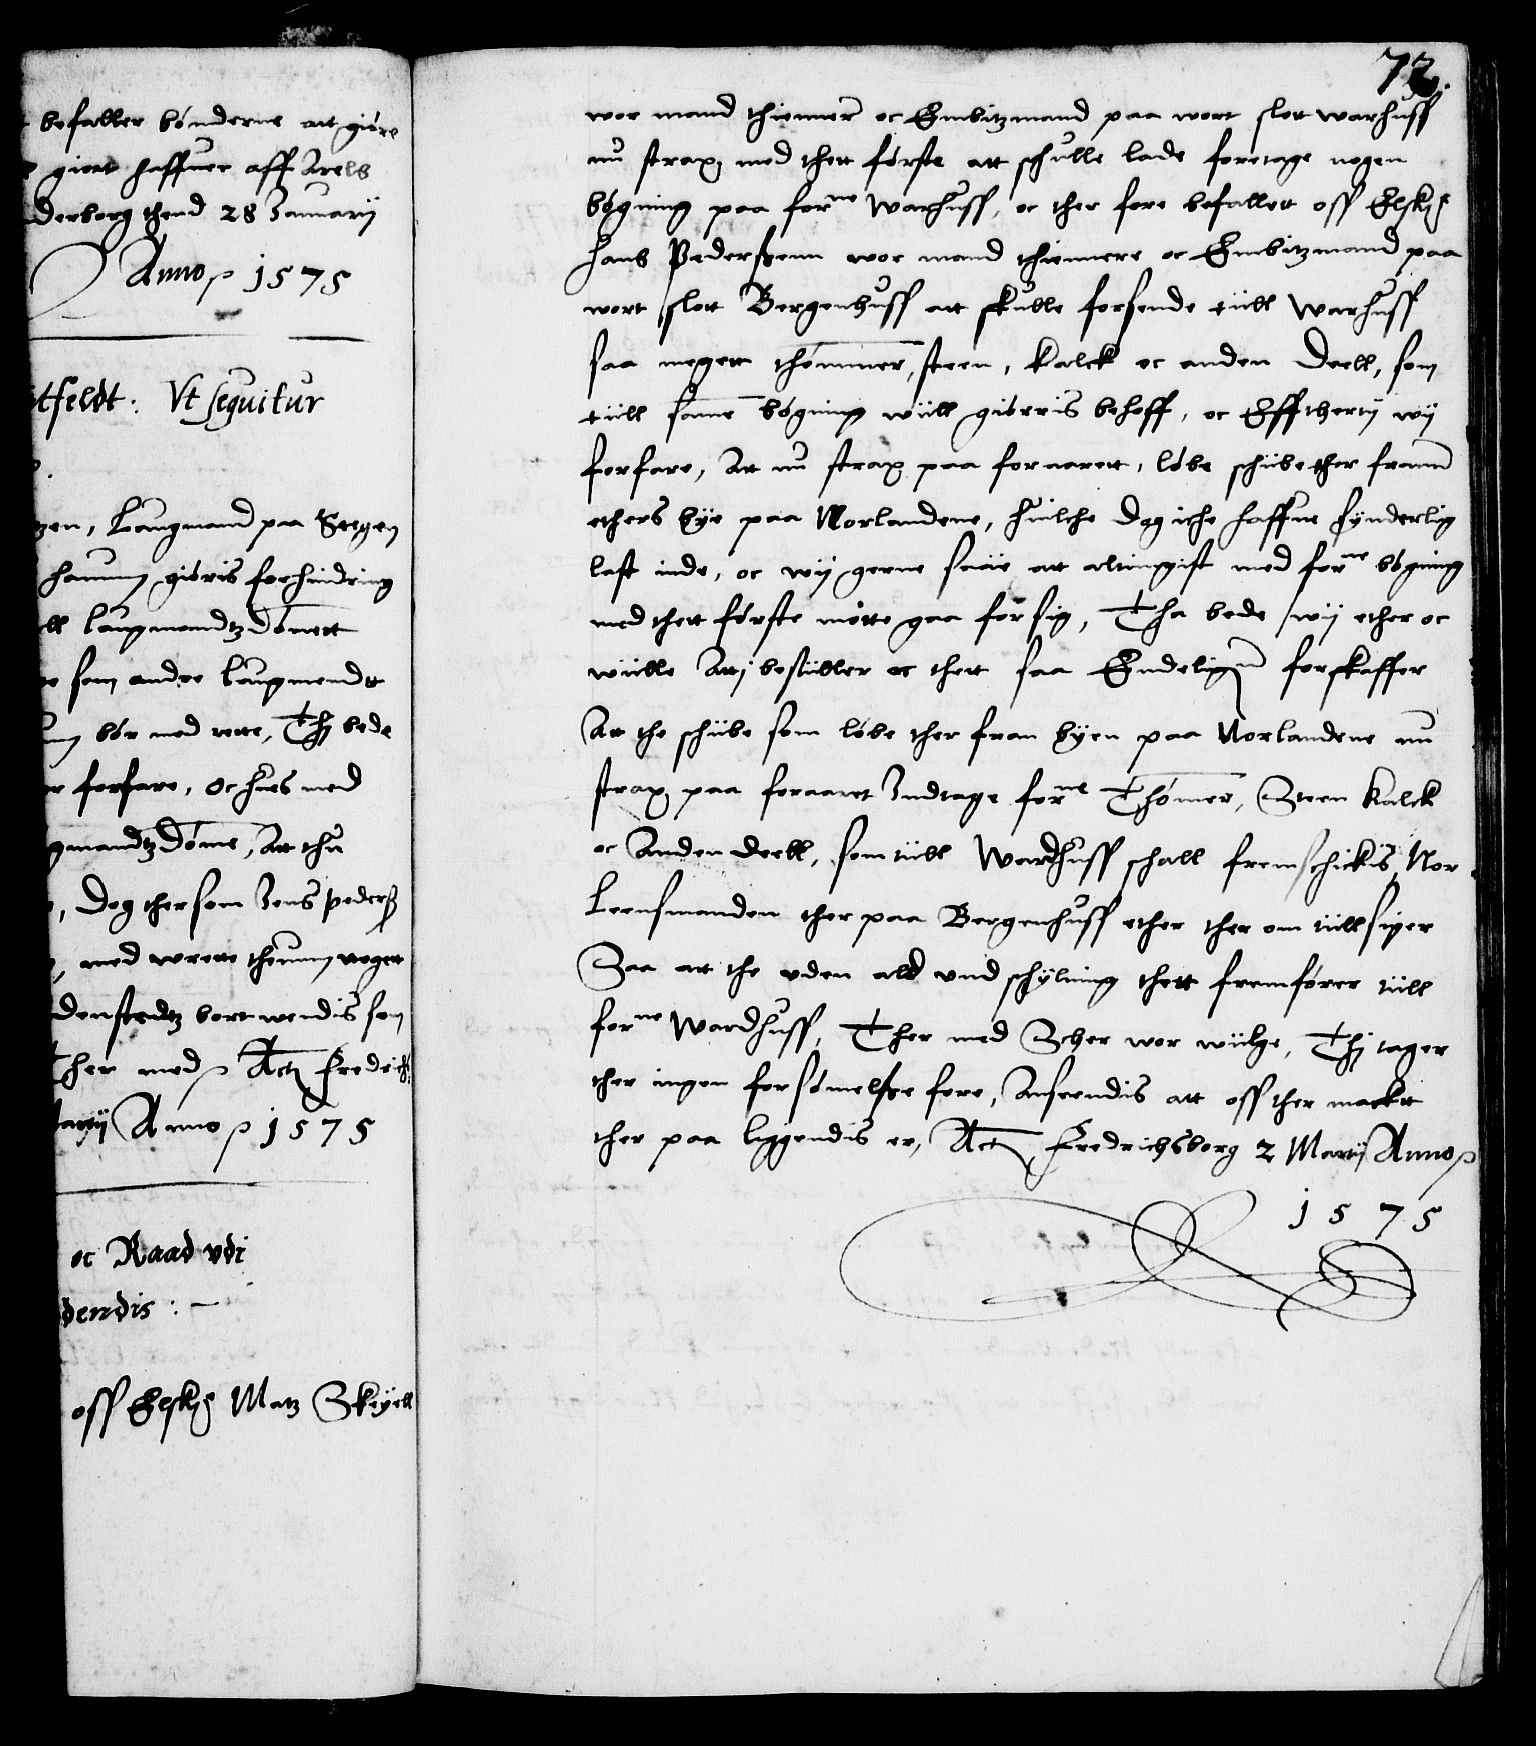 befaller bónderne att gióre
giort haffuer aff Arels
derborg thend 28 Januarij
Anno 1575
tfeldt: Vt sequitur
zen, Laugmand paa Stegen
hannum gióris forhindring
ll laugmandtz Dómett
som andre laugmendt
bór med rette, Thj bede
forfare, Oc hues med
gmandtz Dóme, Att thu
Dog ther som Jens Peders
med wrette thennum noget
denstedtz bort wendis som
Ther med Act Fredrichs
artij Anno 1575
oc Raad vdi
dendis: —
oss Elsk Matz Skeyell
72.
wor mand thiener oc Embitzmand paa wort slott warhuss
nu strax med thett fórste att schulle lade foretage nogen
bógning paa forne Warhuss, oc ther fore befallett oss Elsk
Hans Pederssenn wor mand thiennere oc Embitzmand paa
wort slott Bergenhuss att skulle forsende till Warhuss
saa megett thómmer, steen, kalck oc anden Deell, som
till same bógning will giórris behoff, oc Effttherty wij
forfare, Att nu strax paa foraarett, lóbe schibe ther framm
ethers bye paa Norlandene, huilche dog iche haffue synderlig
last inde, oc wij gerne saae att altingist med forne bógning
med thett fórste motte gaa for sig, Tha bede wij ether oc
wille Att j bestiller oc thett saa Endeligen forskaffer
Att the schibe som lóbe ther fran byen paa Norlandene nu
strax paa foraaret Indtage forne Thómer, Steen Kalck
oc Anden deell, som till Wardhuss schall fremschickis, Nor
Leensmanden ther paa Bergenhuss ether ther om tillsiger
Saa att the vden ald vndschylning thett fremfórer till
forne Wardhuss, Ther med Scher wor wilge, Thj tager
ther ingen forsómelsse fore, Anseendis att oss ther mackt
ther paa liggendis er, Act Fredrichsborg 2 Martij Anno
1575